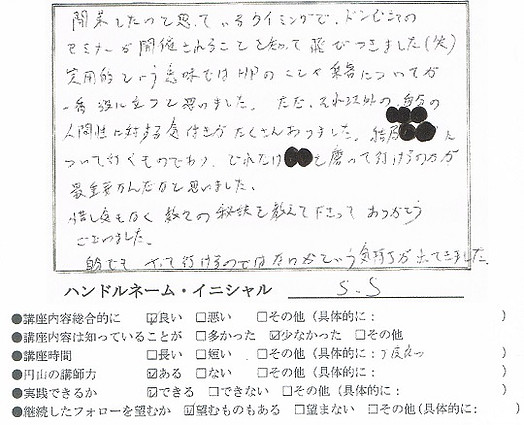 開業したいと思っているタイミングで、ドンピシャの
セミナーが開催されることを知って飛びつきました(笑)
実用的という意味ではHPのことや集客についてが
一番役に立つと思いました。ただ、それ以外の自分の
人間性に対する気付きがたくさんありました。結局
ついて行くものであり、どれだけ を磨いて行けるのかが
最重要なんだなと思いました。
惜し気もなく数々の秘訣を教えて下さって ありがとう
ございました。
自分でも やって行けるのではないかという気持ちが出てきました。
ハンドルネーム・イニシャル S.S
●講座内容総合的に ☑良い □悪い □その他(具体的に: )
●講座内容は知っていることが □多かった ☑少なかった □その他
●講座時間 □長い □短い □その他(具体的に:丁度良い )
●円山の講師力 ☑ある □ない □その他(具体的に: )
●実践できるか ☑できる □できない □その他(具体的に: )
●継続したフォローを望むか ☑望むものもある □望まない □その他(具体的に: )